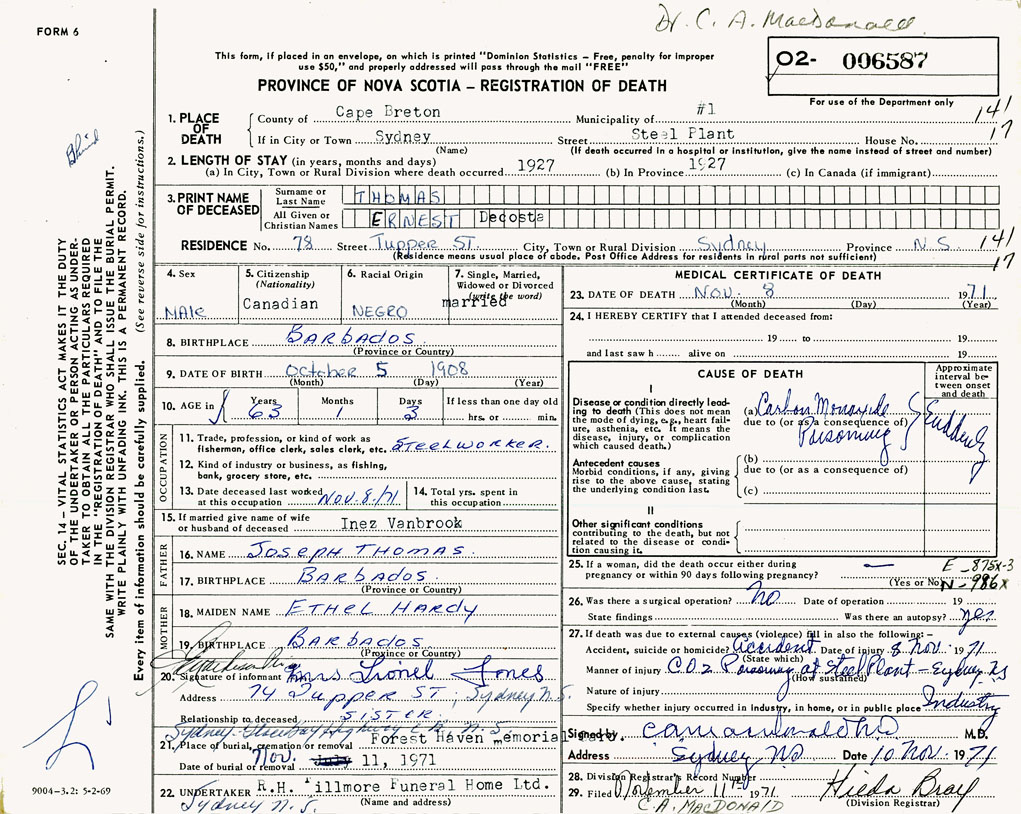 Dr. C. A. MacDonald
FORM 6
This form, if placed in an envelope, on which is printed "Dominion Statistics — Free, penalty for improper
use $50," and properly addressed will pass through the mail "FREE"
O2- 006587
PROVINCE OF NOVA SCOTIA — REGISTRATION OF DEATH
For use of the Department only
1. PLACE OF DEATH
County of Cape Breton Municipality of #1 141
If in City or Town Sydney Street Steel Plant House No. 17
(Name) (If death occurred in a hospital or institution, give the name instead of street and number)
2. LENGTH OF STAY (in years, months and days)
(a) In City, Town or Rural Division where death occurred 1927 (b) In Province 1927 (c) In Canada (if immigrant)
3. PRINT NAME OF DECEASED
Surname or Last Name THOMAS
All Given or Christian Names ERNEST Decosta
RESIDENCE No. 78 Street Tupper ST. City, Town or Rural Division Sydney Province N.S. 141
(Residence means usual place of abode. Post Office Address for residents in rural parts not sufficient) 17
4. Sex
MAle
5. Citizenship
(Nationality)
Canadian
6. Racial Origin
NEGRO
7. Single, Married,
Widowed or Divorced
(write the word)
married
8. BIRTHPLACE BARbADOS.
(Province or Country)
9. DATE OF BIRTH October 5 1908
(Month) (Day) (Year)
10. AGE in
Years 63
Months 1
Days 3
If less than one day old
hrs. or min.
OCCUPATION
11. Trade, profession, or kind of work as
fisherman, office clerk, sales clerk, etc. STEELWORKER.
12. Kind of industry or business, as fishing,
bank, grocery store, etc.
13. Date deceased last worked
at this occupation Nov. 8/71
14. Total yrs. spent in
this occupation
15. If married give name of wife
or husband of deceased Inez Vanbrook
FATHER
16. NAME JOSEPH THOMAS.
17. BIRTHPLACE BARbADOS.
(Province or Country)
MOTHER
18. MAIDEN NAME ETHEL HARDY
19. BIRTHPLACE BARBADOS
(Province or Country)
20. Signature of informant Mrs Lionel Jones
Address 74 Tupper ST; Sydney N.S.
Relationship to deceased SISTER.
21. Place of burial, cremation or removal Forest Haven memorial
Date of burial or removal Nov. July 11, 1971
22. UNDERTAKER R.H. Fillmore Funeral Home Ltd.
(Name and address)
Sydney N.S.
MEDICAL CERTIFICATE OF DEATH
23. DATE OF DEATH Nov. 8 1971
(Month) (Day) (Year)
24. I HEREBY CERTIFY that I attended deceased from:
19 to 19
and last saw h alive on 19
CAUSE OF DEATH
Approximate
interval be-
tween onset
and death
I
Disease or condition directly lead-
ing to death (This does not mean
the mode of dying, e.g., heart fail-
ure, asthenia, etc. It means the
disease, injury, or complication
which caused death.)
(a) Carbon Monoxide
due to (or as a consequence of)
Poisoning Suddenly
Antecedent causes
Morbid conditions, if any, giving
rise to the above cause, stating
the underlying condition last.
(b)
due to (or as a consequence of)
(c)
II
Other significant conditions
contributing to the death, but not
related to the disease or condi-
tion causing it.
25. If a woman, did the death occur either during
pregnancy or within 90 days following pregnancy? —
(Yes or No)
E-875x-3
N-986x
26. Was there a surgical operation? No Date of operation 19
State findings Was there an autopsy? yes
27. If death was due to external causes (violence) fill in also the following:—
Accident, suicide or homicide? Accident Date of injury 8 Nov. 1971
(State which)
Manner of injury CO2 Poisoning at Steel Plant - Sydney NS
(How sustained)
Nature of injury
Specify whether injury occurred in industry, in home, or in public place Industry
Signed by M.D.
Address Sydney NS Date 10 Nov. 1971
28. Division Registrar's Record Number
29. Filed November 11th 1971 Hilda Bray
C.A. MACDONALD (Division Registrar)
SEC. 14 — VITAL STATISTICS ACT MAKES IT THE DUTY
OF THE UNDERTAKER OR PERSON ACTING AS UNDER-
TAKER TO OBTAIN ALL THE PARTICULARS REQUIRED
IN THE "REGISTRATION OF DEATH" AND TO FILE THE
SAME WITH THE DIVISION REGISTRAR WHO SHALL ISSUE THE BURIAL PERMIT.
WRITE PLAINLY WITH UNFADING INK. THIS IS A PERMANENT RECORD.
Every item of information should be carefully supplied. (See reverse side for instructions.)
9004-3.2: 5-2-69